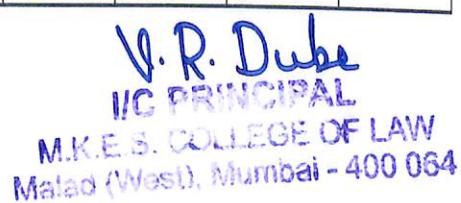 V. R. Dube
I/C PRINCIPAL
M.K.E.S. COLLEGE OF LAW
Malad (West), Mumbai - 400 064